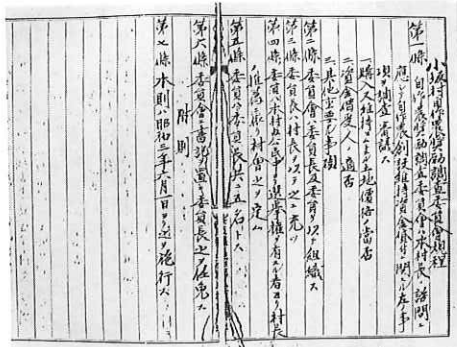 小坂村自作農奨励調査委員會規程
第一條 自作農奨励調査委員會ハ本村長ノ諮問ニ
應ジ自作農創設維持資金貸付ニ関スル左ノ事
項ヲ調査審議ス
一、購入又ハ維持スベキ土地價格ノ當否
二、資金借受人ノ適否
三、其他必要ナル事項
第二條 委員會ハ委員長及委員ヲ以テ組織ス
第三條 委員長ハ村長ヲ以テ之ニ充ツ
第四條 委員ハ本村公民ニシテ選挙権ヲ有スル者ヨリ村長
ノ推薦ニ依リ村會之ヲ定ム
第五條 委員ハ委員長共ニ五名トス
第六條 委員會ニ書記ヲ置キ委員長之ヲ任免ス
附則
第七條 本則ハ昭和三年六月一日ヨリ之ヲ施行ス